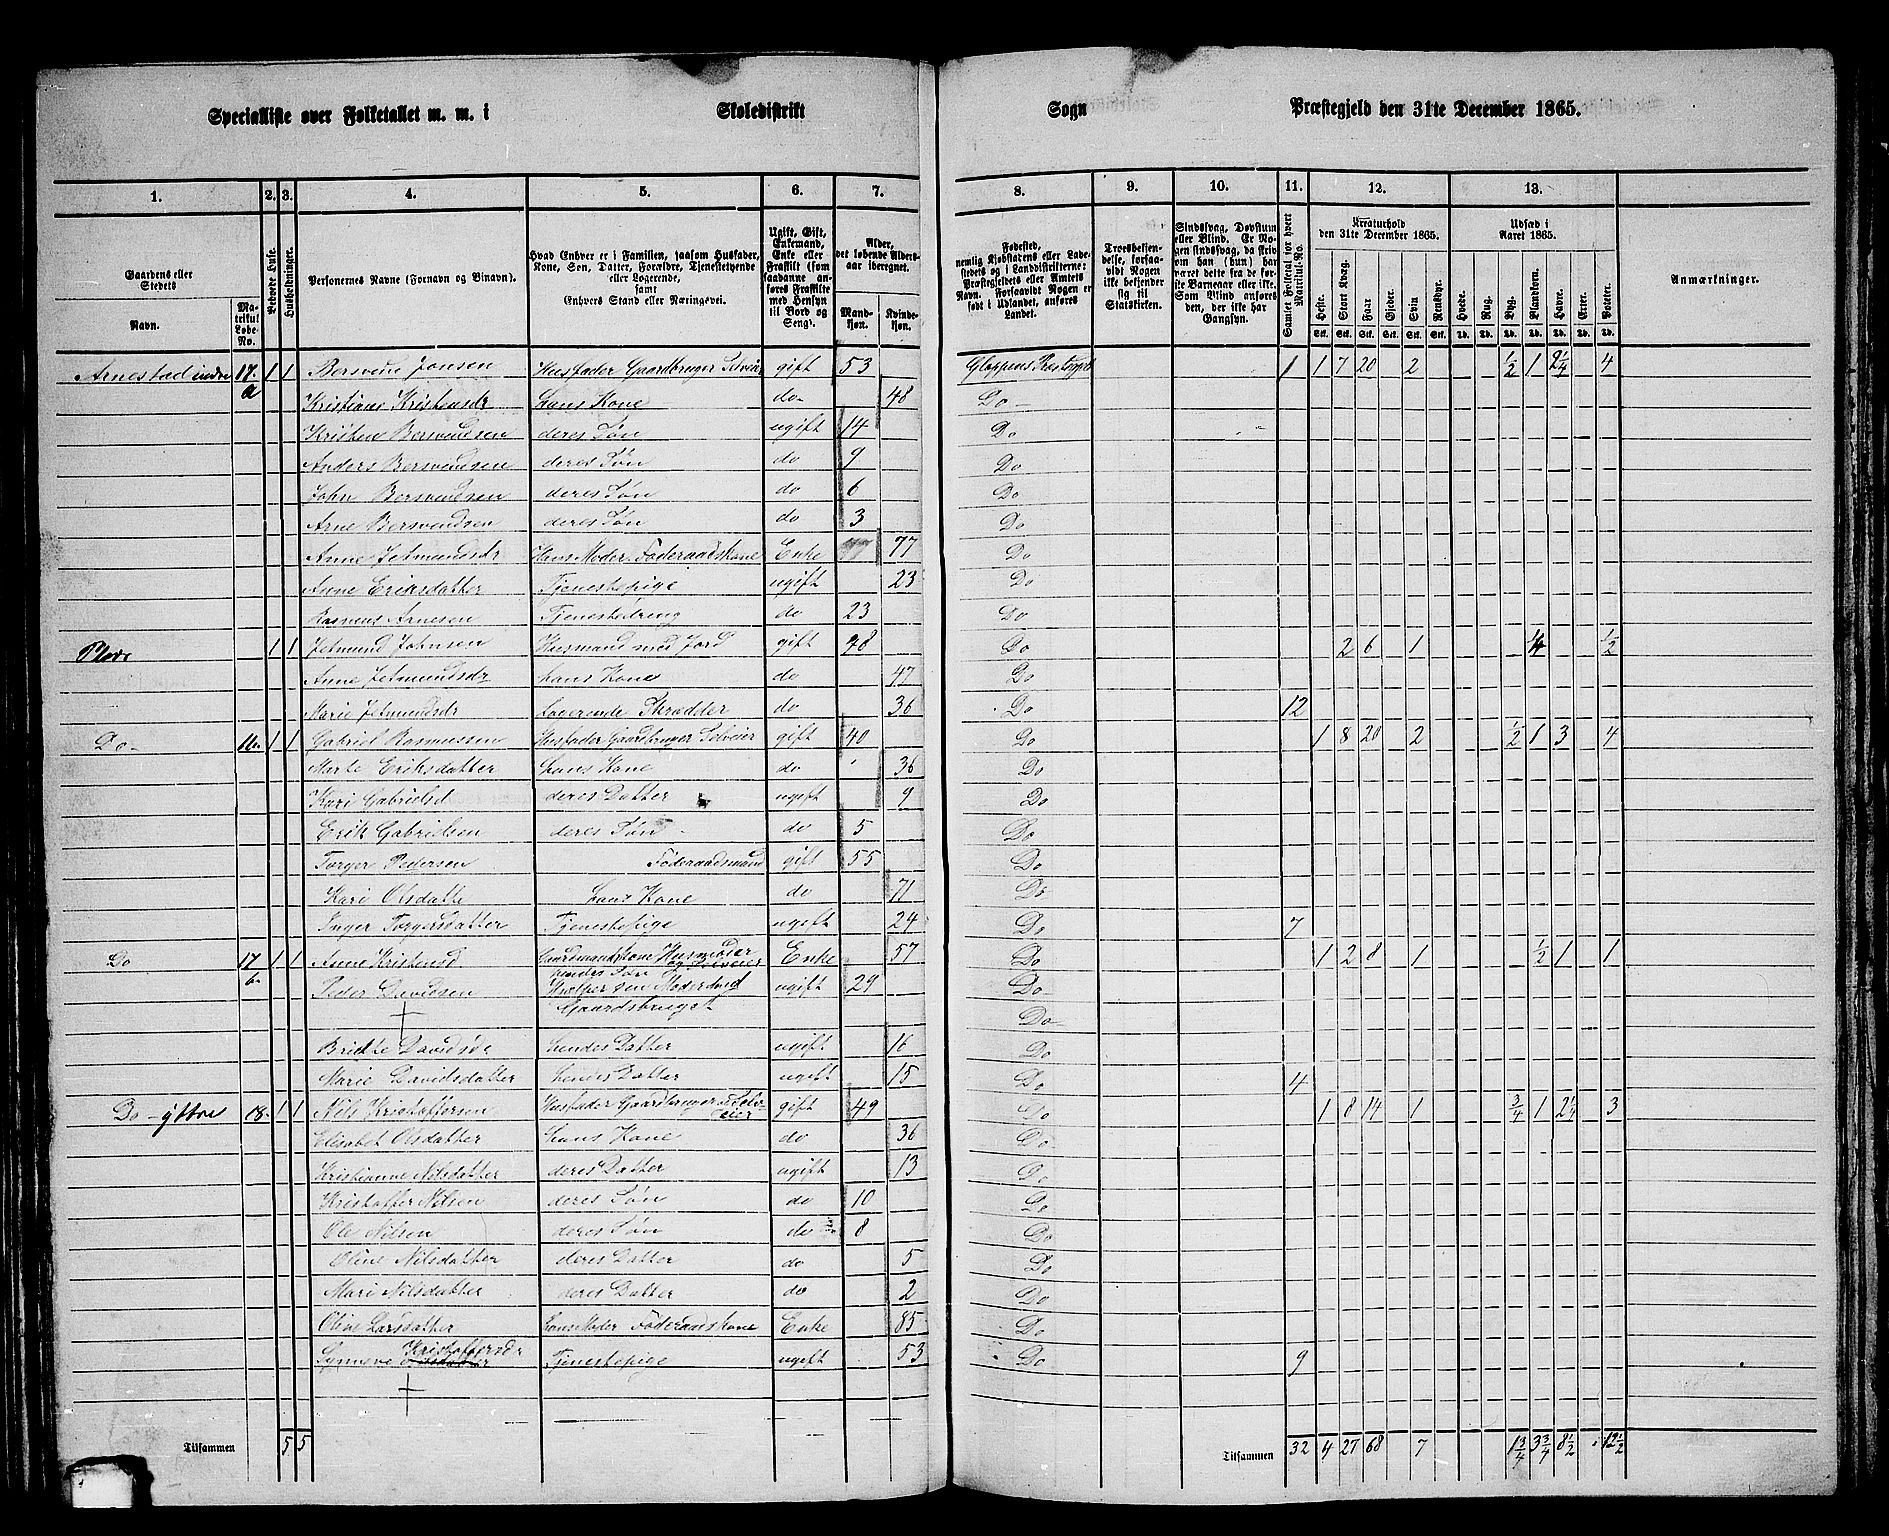 Specialliste over Folketallet m. m. i Skoledistrikt Sogn Præstegjeld den 31te December 1865.
1. 2. 3. 4. 5. 6. 7. 8. 9. 10. 11. 12. 13.
Gaardens eller Stedets Navn.
Matrikul Løbe-No.
Beboede Huse.
Husholdninger.
Personernes Navne (Fornavn og Binavn).
Hvad Enhver er i Familien, saasom Husfader, Kone, Søn, Datter, Forældre, Tjenestetyende eller Logerende, samt Enhvers Stand eller Næringsvei.
Ugift, Gift, Enkemand, Enke eller Fraskilt (som saadanne anføres Fraskilte med Hensyn til Bord og Seng).
Alder, det løbende Aldersaar iberegnet.
Mandkjøn. Kvindekjøn.
Fødested, nemlig Kjøbstadens eller Ladestedets og i Landdistrikterne: Præstegjeldets eller Amtets Navn. Forsaavidt Nogen er født i Udlandet, anføres Landet.
Troesbekjendelse, forsaavidt Nogen ikke bekjender sig til Statskirken.
Sindssvag, Døvstum eller Blind. Er Nogen sindssvag, da skrives om han (hun) har været dette fra de første Barneaar eller ikke. Som Blind anføres den, der ikke har Gangsyn.
Samlet Folketal for hvert Matrikul-No.
Kreaturhold den 31te December 1865.
Heste. Stort Kvæg. Faar. Gjeder. Svin. Rensdyr.
Udsæd i Aaret 1865.
Hvede. Rug. Byg. Blandkorn. Havre. Erter. Poteter.
Anmærkninger.
Arnestad indre 17. a 1 1 Bersvend Jonsen Husfader Gaardbruger Selveier gift 53 Gloppens Præstegjeld 1 1 7 20 2 1/2 1 2 1/4 4
Kristiane Kristensdr hans Kone do 48 Do
Kristen Bersvendsen deres Søn ugift 14 Do
Anders Bersvendsen deres Søn do 9 Do
John Bersvendsen deres Søn do 6 Do
Arne Bersvendsen deres Søn do 3 Do
Anne Jetmundsdr Hans Moder Föderaadskone Enke 77 Do
Anne Eriksdatter Tjenestepige ugift 23 Do
Rasmus Arnesen Tjenestedreng do 23 Do
Plads 1 1 Jetmund Johnsen Husmand med Jord gift 48 Do 2 6 1 1/4 1/2
Anne Jetmundsdr hans Kone do 47 Do
Marie Jetmundsdr Logerende Skrædder do 36 Do 12
Do 16 1 1 Gabriel Rasmussen Husfader Gaardbruger Selveier gift 40 Do 1 8 20 2 1/2 1 3 4
Marte Eriksdatter hans Kone do 36 Do
Kari Gabrielsd deres Datter ugift 9 Do
Erik Gabrielsen deres Søn do 5 Do
Torger Pedersen Föderaadsmand gift 55 Do
Kari Olsdatte hans Kone do 71 Do
Inger Torgersdatter Tjenestepige ugift 24 Do 7
Do 17 b 1 1 Anne Kristensd Gaardmandskone Husmoder og Selveier Enke 57 Do 1 2 8 1 1/2 1 1
Peder Davidsen hendes Søn Hjelper sin Moder med Gaardsbruget ugift 29 Do
Do
Bridte Davidsda hendes Datter ugift 16 Do
Marie Davidsdatter hendes Datter ugift 15 Do 4
Do ÿttre 18 1 1 Nils Kristoffersen Husfader Gaardbruger Selveier gift 49 Do 1 8 14 1 3/4 1 2 1/4 3
Elisabet Olsdatter hans Kone do 36 Do
Kristianne Nilsdatter deres Datter ugift 13 Do
Kristoffer Nilsen deres Søn do 10 Do
Ole Nilsen deres Søn do 8 Do
Oline Nilsdatter deres Datter do 5 Do
Mari Nilsdatter deres Datter do 2 Do
Oline Larsdatter Hans Moder Föderaadskone Enke 85 Do
Synneve Kristoffersdr Tjenestepige ugift 53 Do 9
Tilsammen 5 5 Tilsammen 32 4 27 68 7 1 3/4 3 3/4 8 1/2 12 1/2